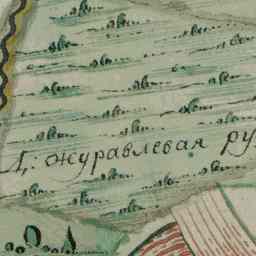 Д: журавлевая ру